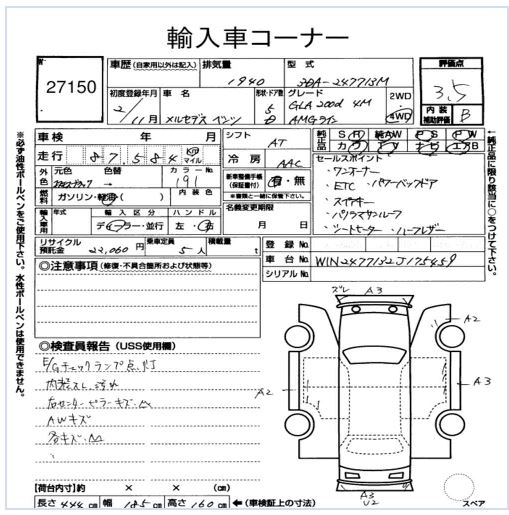 輸入車コーナー
No.
27150
車歴 (自家用以外は記入)
排気量 1940
型式 3DA-247713M
評価点 3.5
内装補助評価 B
初度登録年月 2/11月
車名 メルセデスベンツ
形状・ドア数 5
グレード GLA200d 4M AMGライン
2WD
4WD
車検 年 月
走行 87584 km マイル
シフト AT
冷房 AAC
純正品 S R 純AW P S P W
カ ナ T V ナ ビ エアB
外色 元色 色替 カラーNo. 191
燃料 ガソリン・軽油( ) 内装色
新車整備手帳(保証書付) 有・無
※書類と一緒に保管下さい。
輸入車用 年式 輸入区分 ディーラー・並行 ハンドル 左・右
名義変更期限 月 日
リサイクル預託金 22,060円 乗車定員 5人 積載量 t
セールスポイント
・ワンオーナー
・ETC ・パワーバックドア
・スマートキー
・パノラマサンルーフ
・シートヒーター ・ハーフレザー
登録No.
車台No. W1N2477132J175459
シリアルNo.
◎注意事項 (修復・不具合箇所および状態等)
◎検査員報告 (USS使用欄)
E/Gチェックランプ点灯
内装スレ、汚れ
右センターピラーキズ、凹
AWキズ
各キズ、凹
ズレ A3
A2
A2
A3
A3
V2
スペア
【荷台内寸】約 × × (cm)
長さ 444cm 幅 185cm 高さ 160cm ←(車検証上の寸法)
※必ず油性ボールペンをご使用下さい。水性ボールペンは使用できません。
←純正品に限り該当に○をつけて下さい。